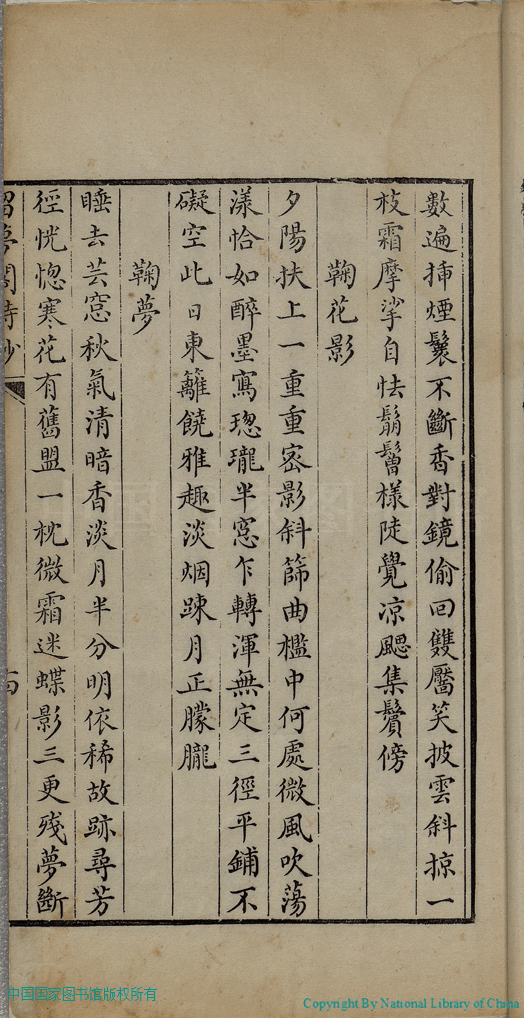 數遍揷煙鬟不斷香對鏡偷回雙靨笑披雲斜掠一
枝霜摩挲自怯鬅鬙樣陡覺凉颸集鬢傍
鞠花影
夕陽扶上一重重密影斜篩曲檻中何處微風吹蕩
漾恰如醉墨寫璁瓏半窓乍轉渾無定三徑平鋪不
礙空此日東籬饒雅趣淡烟踈月正朦朧
鞠夢
睡去芸窓秋氣清暗香淡月半分明依稀故跡尋芳
徑恍惚寒花有舊盟一枕微霜迷蝶影三更殘夢斷
留夢閣詩鈔
中国国家图书馆版权所有
Copyright By National Library of China